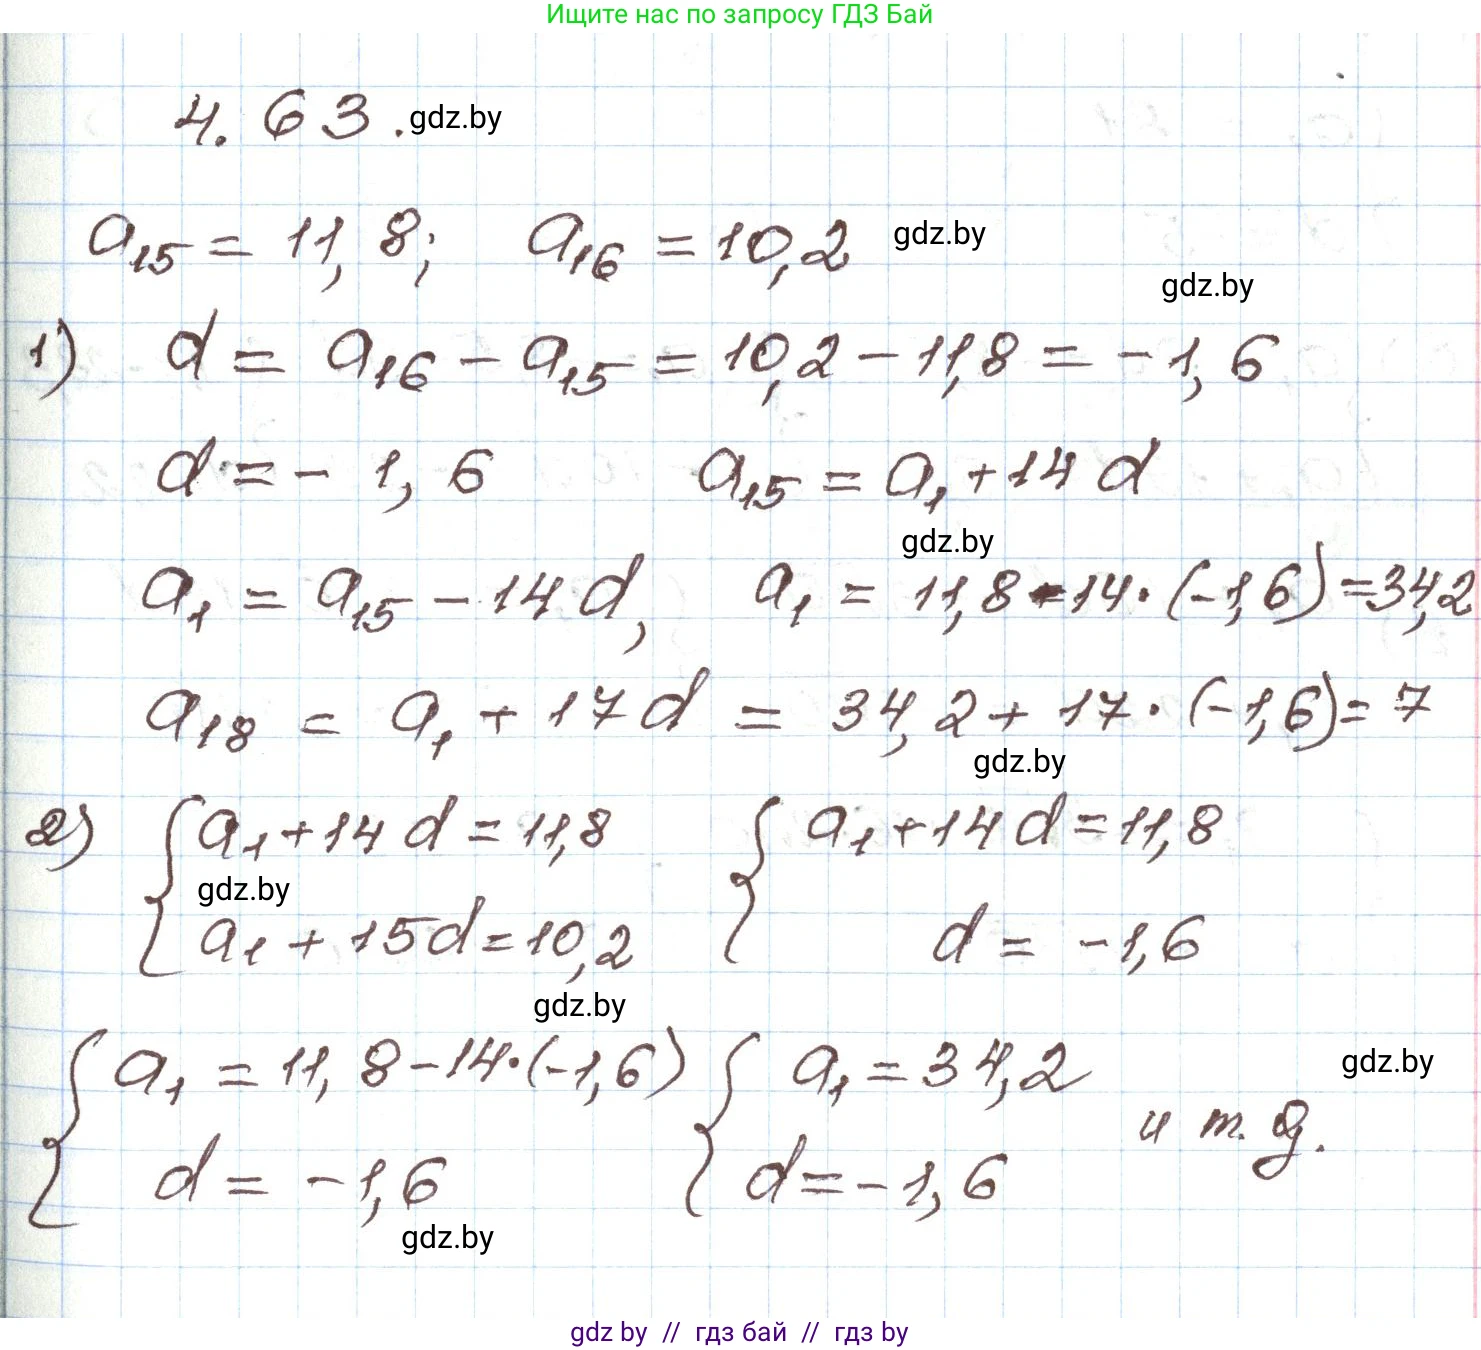 Ищите нас по запросу ГДЗ Бай
4.63. gdz.by
a₁₅ = 11,8; a₁₆ = 10,2 gdz.by
gdz.by
1) d = a₁₆ - a₁₅ = 10,2 - 11,8 = -1,6
d = - 1,6 a₁₅ = a₁ + 14 d
gdz.by
a₁ = a₁₅ - 14 d, a₁ = 11,8 - 14 · (-1,6) = 34,2
a₁₈ = a₁ + 17 d = 34,2 + 17 · (-1,6) = 7
gdz.by
2) { a₁ + 14 d = 11,8 { a₁ + 14 d = 11,8
gdz.by
a₁ + 15 d = 10,2 d = -1,6
gdz.by
{ a₁ = 11,8 - 14 · (-1,6) { a₁ = 34,2 gdz.by
и т. д.
d = -1,6 d = -1,6
gdz.by
gdz by // гдз бай // гдз by